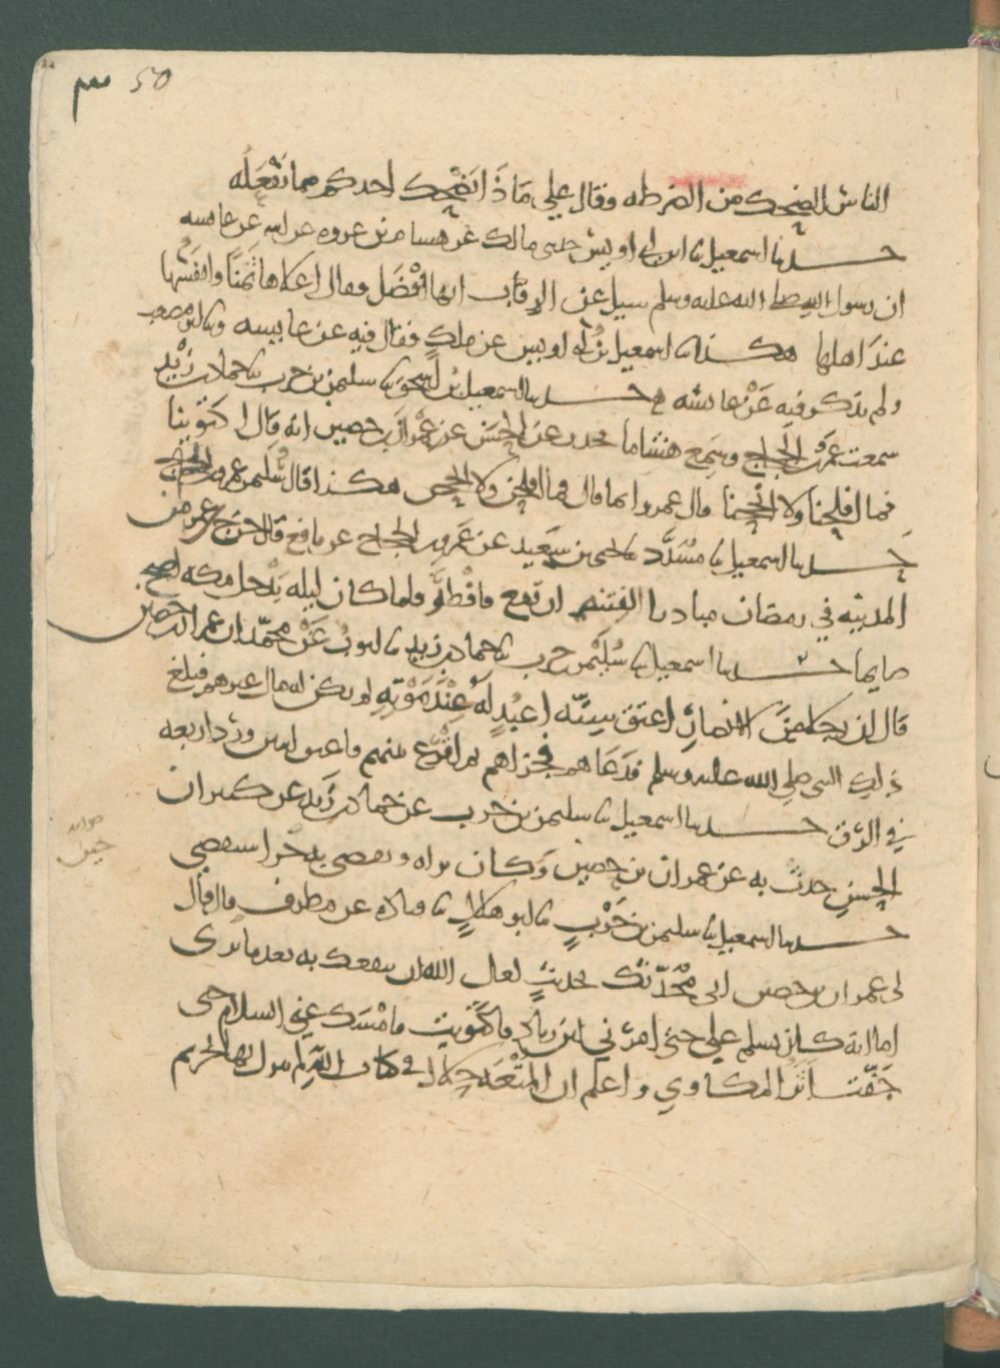 ٢٥
الناس الضحك من الضرطه وقال علي ماذا يضحك احدكم مما يفعله
حدثنا اسمعيل ثنا ابن ابي اويس حدثني مالك عن هشام بن عروه عن ابيه عن عائشه
ان رسول الله صلى الله عليه وسلم سيل عن الرقاب ايها افضل فقال اعلاها ثمنا وانفسها
عند اهلها هكذا ثنا اسمعيل بن ابي اويس عن ملك فقال فيه عن عايشه وثنا ابو مصعب
ولم يذكر فيه عن عايشه حدثنا اسمعيل بن اسحق ثنا سليمن بن حرب ثنا حماد بن زيد
سمعت عمرو بن الحجاج وسمع هشاما يحدث عن الحسن عن عمران بن حصين انه قال اكتوينا
فما افلحنا ولا انجحنا قال عمرو انما قال فما افلحن ولا انجحن هكذا قال سليمن عمرو بن الحجاج
حدثنا اسمعيل ثنا مسدد ثنا يحيى بن سعيد عن عمرو بن الحجاج عن نافع قال خرج عمر من
المدينه في رمضان مبادرا الفتنه ان تقع فافطر فلما كان ليله يدخل مكه اصبح
صايما حدثنا اسمعيل ثنا سليمن بن حرب ثنا حماد بن زيد ثنا ايوب عن محمد ان عمران بن حصين
قال ان رجلا من الانصار اعتق سته اعبد له عند موته لم يكن له مال غيرهم فبلغ
ذلك النبي صلى الله عليه وسلم فدعاهم فجزاهم ثم اقرع بينهم فاعتق اثنين ورد اربعه
في الرق حدثنا اسمعيل ثنا سليمن بن حرب عن حماد بن زيد عن
الحسن حدث به عن عمران بن حصين وكان يراه
حدثنا اسمعيل ثنا سليمن بن حرب ثنا ابو هلال ثنا قتاده عن مطرف قال قال
لي عمران بن حصين اني محدثك بحديث لعل الله ان ينفعك به بعد ما ترى
اما انه كان يسلم علي حتى امرني ابن زياد فاكتويت فامسك عني السلام حتى
جفت اثر المكاوي واعلم ان المتعه حلال في كتاب الله لم ينزل بها تحريم